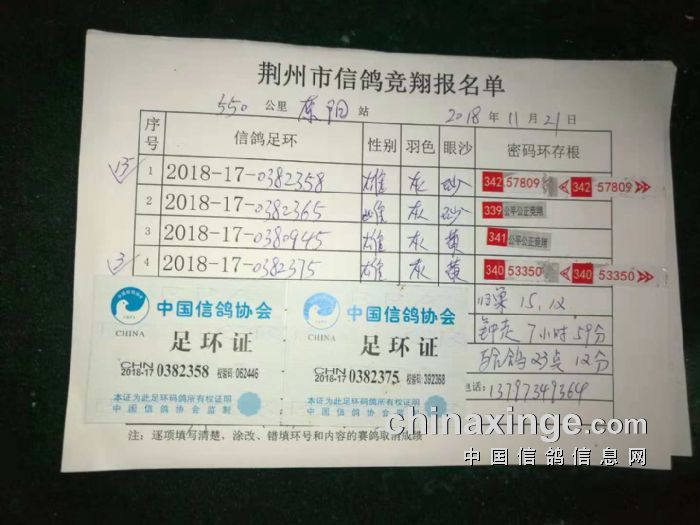 荆州市信鸽竞翔报名单
550 公里 阳 站 2018 年 11 月 21 日
序号 信鸽足环 性别 羽色 眼沙 密码环存根
1 2018-17-0382358 雄 灰 砂 342 57809 342 57809
2 2018-17-0382365 雄 灰 砂 339 公平公正竞翔
3 2018-17-0380945 雄 灰 黄 341 公平公正竞翔
4 2018-17-0382375 雄 灰 黄 340 53350 340 53350
归巢 15.12
钟走 7小时59分
鸽 23点12分
电话: 13797349364
中国信鸽协会
CHINA
足环证
CHN 2018-17 0382358 校验码: 062446
本证为此足环码鸽所有权证明
中国信鸽协会监制
中国信鸽协会
CHINA
足环证
CHN 2018-17 0382375 校验码: 392368
本证为此足环码鸽所有权证明
中国信鸽协会监制
注: 逐项填写清楚、涂改、错填环号和内容的赛鸽取消成绩
chinaxinge.com
中国信鸽信息网